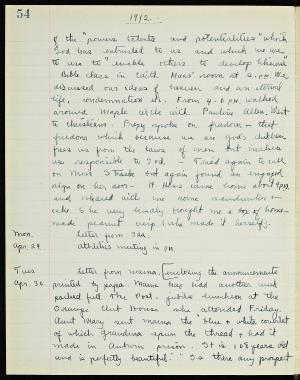 54
1912.
of the "powers talents and potentialities" which
God has entrusted to us and which we are
to use to "enable others to develop likewise"
Bible class in Edith Haas' room at 2. P.M. We
discussed our ideas of heaven and an eternal
life, condemnation etc. From 4-6 P.M. walked
around Maple circle with Pauline Allen. West
to Christians. Prexy spoke on freedom - the
freedom which because we are God's children
frees us from the laws of men but makes
us responsible to God. - Tried again to call
on Miss but again found an engaged
sign on her door - H. Hess came home about 9 P.M.
and shared with me some sandwiches +
cake. She very kindly brought me a box of home-
made peanut (she made it herself).
Mon.
Apr. 29
Letter from Ida
Athletics meeting in P.M.
Tues
Apr. 30
Letter from mama, enclosing the announcements
printed by papa. Mama has had another week
packed full. The Post. jubilee luncheon at the
Orange Art House she attended Friday.
Aunt Mary sent mama the blue + white coverlet
of which Grandma spun the thread + had it
made in Auburn prison. It is 108 years old
and is perfectly beautiful." "Is there any prospect